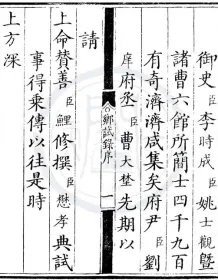 御史臣李時成臣姚士觀曁
諸曹六館所簡士四千九百
有奇濟濟咸集矣府尹臣劉
庠府丞臣曹大埜先期以
鄉試錄序
一
請
上命贊善臣鯉修撰臣懋孝典試
事得乘傳以往是時
上方深